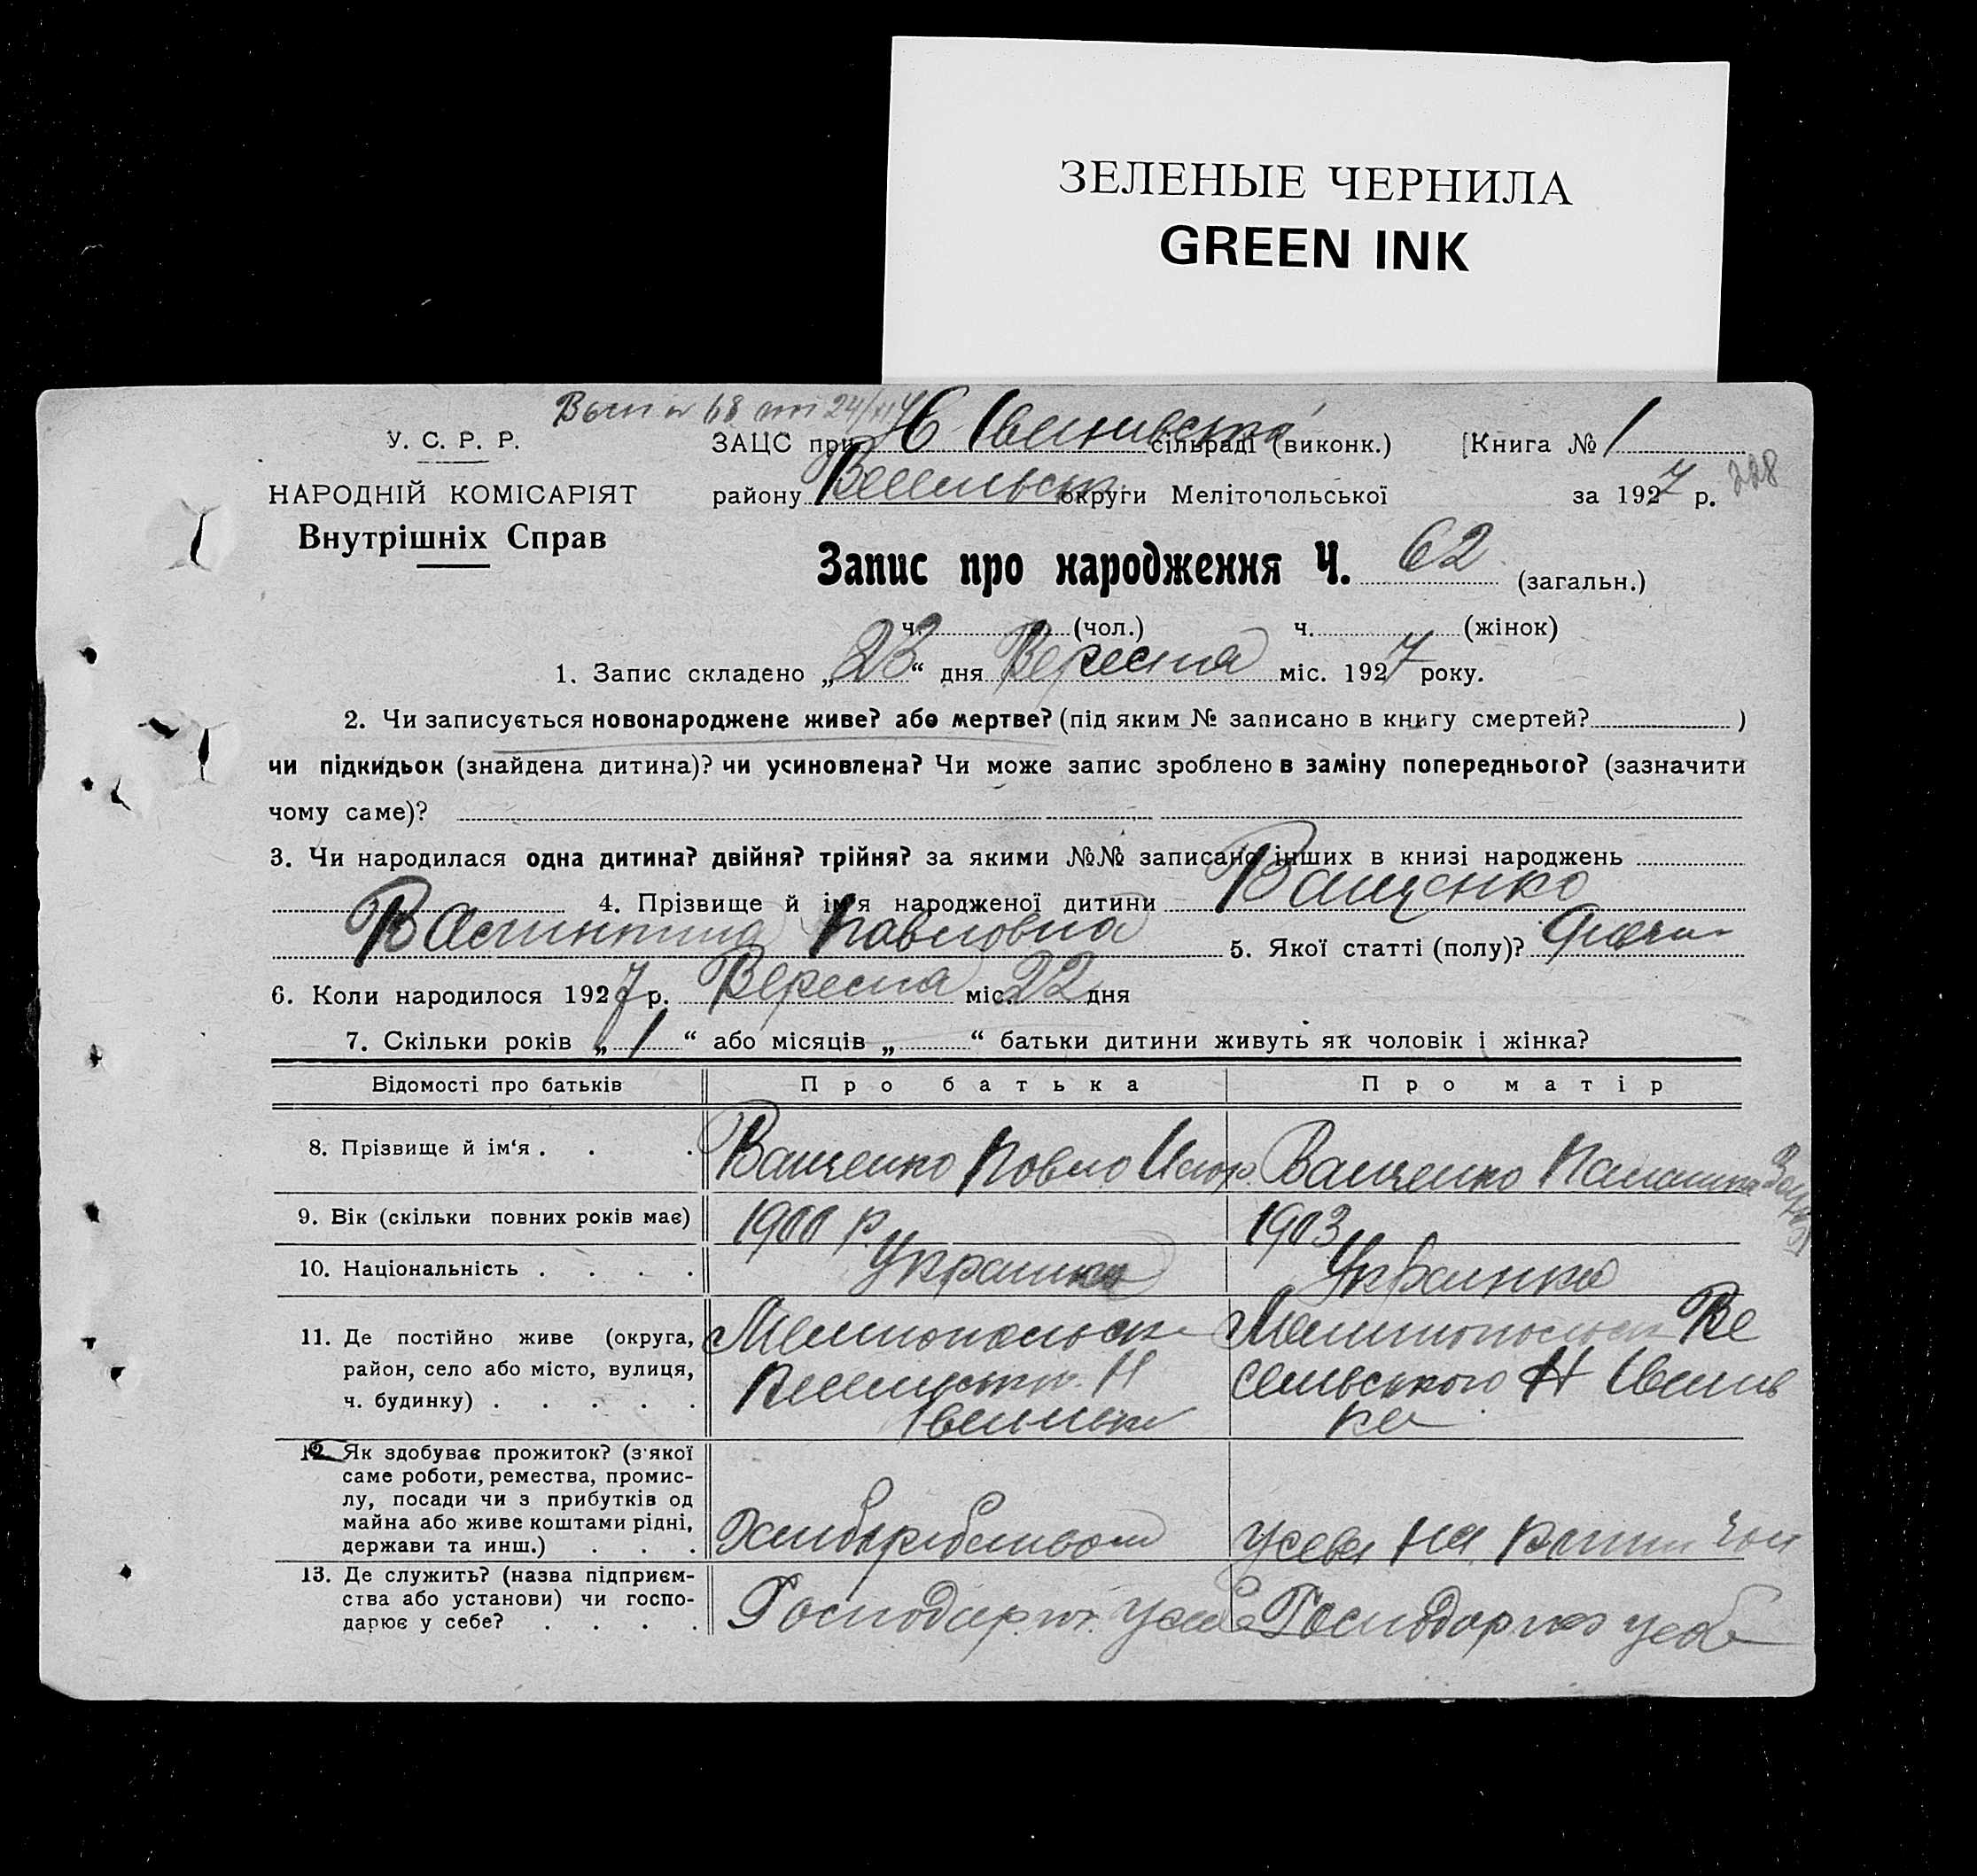 ЗЕЛЕНЫЕ ЧЕРНИЛА
GREEN INK
У. С. Р. Р.
ЗАЦС при Н сільраді (виконк.) [Книга № 1
НАРОДНІЙ КОМІСАРІЯТ
району Весельськ округи Мелітопольської за 1927 р. 228
Внутрішніх Справ
Запис про народження Ч. 62 (загальн.)
ч. (чол.) ч. (жінок)
1. Запис складено „23“ дня Вересня міс. 1927 року.
2. Чи записується новонароджене живе? або мертве? (під яким № записано в книгу смертей? )
чи підкидьок (знайдена дитина)? чи усиновлена? Чи може запис зроблено в заміну попереднього? (зазначити
чому саме)?
3. Чи народилася одна дитина? двійня? трійня? за якими №№ записано інших в книзі народжень
4. Прізвище й ім'я народженої дитини Ващенко
Валинтина Павловна 5. Якої статті (полу)?
6. Коли народилося 1927 р. Вересня міс. 22 дня
7. Скільки років „1“ або місяців „ “ батьки дитини живуть як чоловік і жінка?
Відомості про батьків Про батька Про матір
8. Прізвище й ім'я . . . Ващенко Повло Ващенко
9. Вік (скільки повних років має) 1900 р. 1903
10. Національність . . . . Українка
11. Де постійно живе (округа, район, село або місто, вулиця, ч. будинку) . . . . .
Мелитопольськ
Мелитопольськ Ве
сельського Н
ка
12. Як здобуває прожиток? (з'якої
саме роботи, ремества, промис-
лу, посади чи з прибутків од
майна або живе коштами рідні,
держави та инш.) . . .
у себе на
13. Де служить? (назва підприєм-
ства або установи) чи госпо-
дарює у себе? . . . .
Господар у себе Господарює у себе